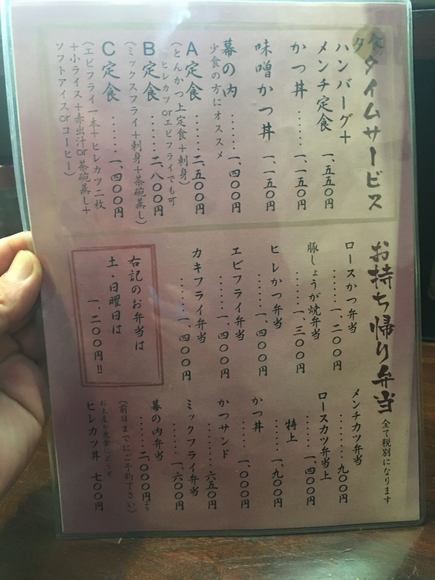 タイムサービス
ハンバーグ＋
メンチ定食 ‥‥一、五五〇円
かつ丼 ‥‥‥一、一五〇円
味噌かつ丼 ‥‥一、一五〇円
幕の内 ‥‥‥一、四〇〇円
少食の方にオススメ
A定食 ‥‥‥二、五〇〇円
(とんかつ上定食＋刺身)
ヒレカツorエビフライでも可
B定食 ‥‥‥二、八〇〇円
(ミックスフライ＋刺身＋茶碗蒸し)
C定食 ‥‥‥一、四〇〇円
(エビフライ一本＋ヒレカツ二枚
＋小ライス＋赤出汁or茶碗蒸し＋
ソフトアイスorコーヒー)
お持ち帰り弁当 全て税別になります
ロースかつ弁当
‥‥‥一、二〇〇円
豚しょうが焼弁当
‥‥‥一、三〇〇円
ヒレかつ弁当
‥‥‥一、四〇〇円
エビフライ弁当
‥‥‥一、四〇〇円
カキフライ弁当
‥‥‥一、四〇〇円
右記のお弁当は
土・日曜日は
一、二〇〇円!!
メンチカツ弁当
‥‥‥九〇〇円
ロースカツ弁当上
‥‥‥一、四〇〇円
特上
‥‥‥一、九〇〇円
かつ丼
‥‥‥一、〇〇〇円
かつサンド
‥‥‥六五〇円
ミックフライ弁当
‥‥‥一、六〇〇円
幕の内弁当
‥‥‥二、〇〇〇円
(前日までにご予約下さい)
ヒレカツ丼 七〇〇円